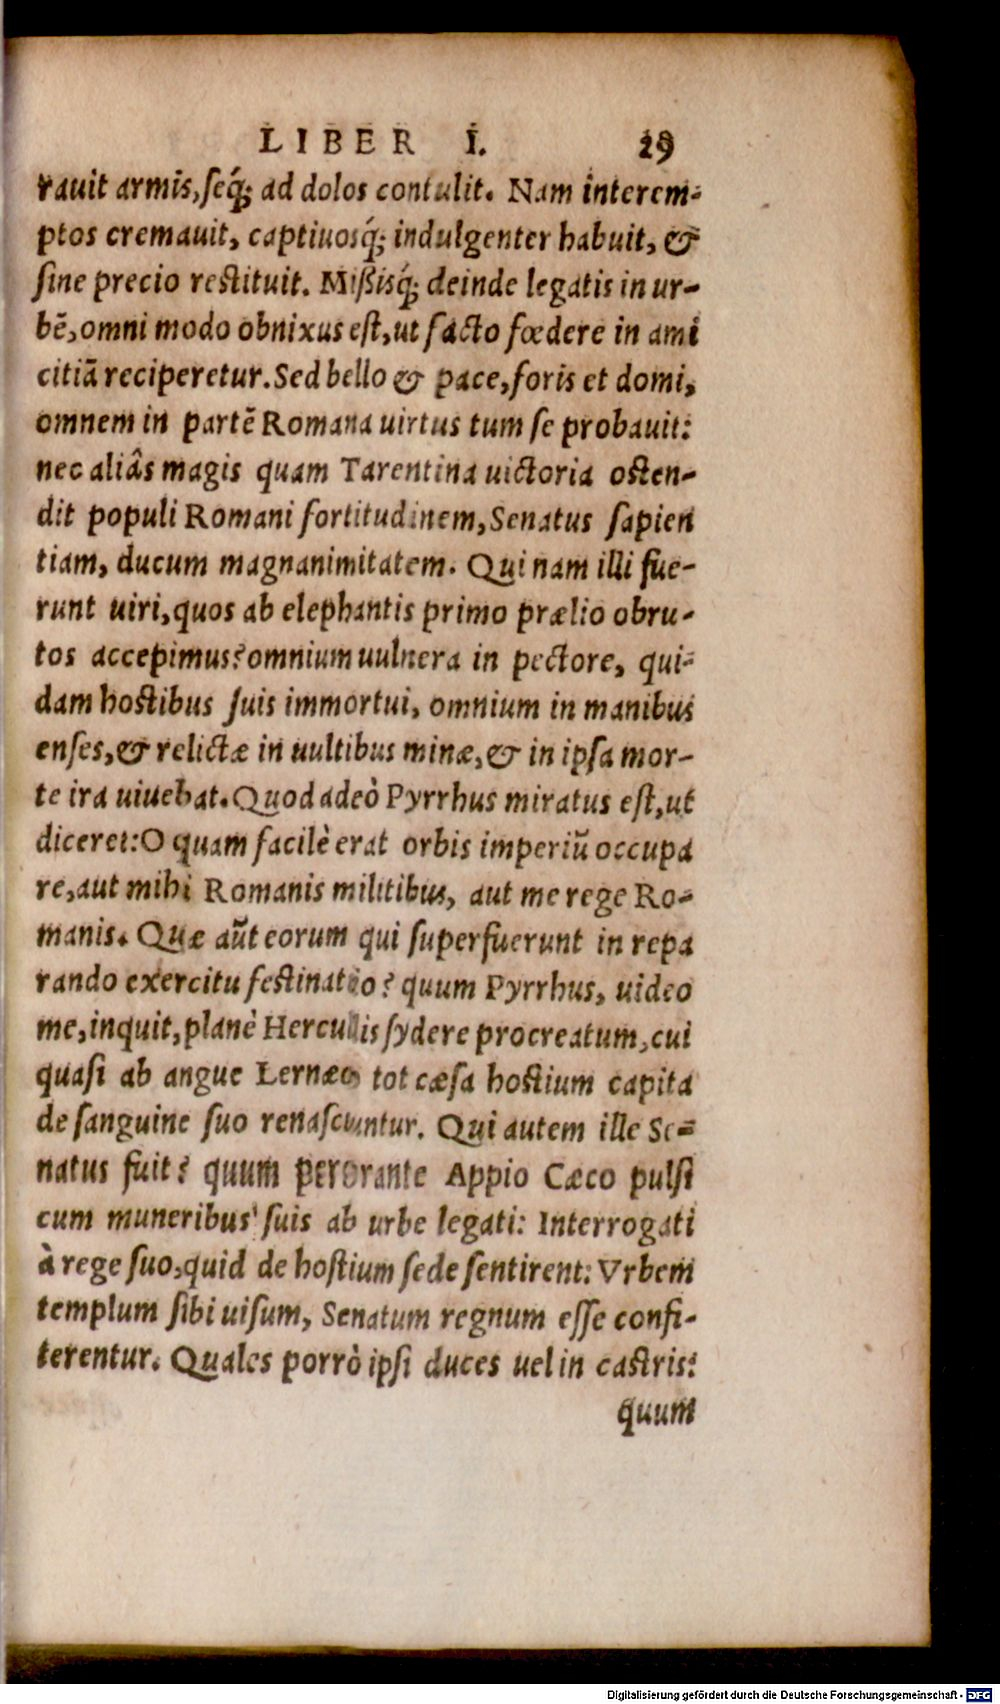 LIBER I. 29
rauit armis, seq́; ad dolos contulit. Nam interem-
ptos cremauit, captiuosq́; indulgenter habuit, &
sine precio restituit. Mißisq́; deinde legatis in ur-
bē, omni modo obnixus est, ut facto fœdere in ami
citiā reciperetur. Sed bello & pace, foris et domi,
omnem in partē Romana uirtus tum se probauit:
nec aliâs magis quam Tarentina uictoria osten-
dit populi Romani fortitudinem, Senatus sapien
tiam, ducum magnanimitatem. Qui nam illi fue-
runt uiri, quos ab elephantis primo prælio obru-
tos accepimus? omnium uulnera in pectore, qui-
dam hostibus suis immortui, omnium in manibus
enses, & relictæ in uultibus minæ, & in ipsa mor-
te ira uiuebat. Quod adeò Pyrrhus miratus est, ut
diceret: O quam facilè erat orbis imperiū occupa
re, aut mihi Romanis militibus, aut me rege Ro-
manis. Quæ aūt eorum qui superfuerunt in repa
rando exercitu festinatio? quum Pyrrhus, uideo
me, inquit, planè Herculis sydere procreatum, cui
quasi ab angue Lernæo tot cæsa hostium capita
de sanguine suo renascuntur. Qui autem ille Se-
natus fuit? quum perorante Appio Cæco pulsi
cum muneribus suis ab urbe legati: Interrogati
à rege suo, quid de hostium sede sentirent: Vrbem
templum sibi uisum, Senatum regnum esse confi-
terentur. Quales porrò ipsi duces uel in castris:
quum
Digitalisierung gefördert durch die Deutsche Forschungsgemeinschaft - DFG